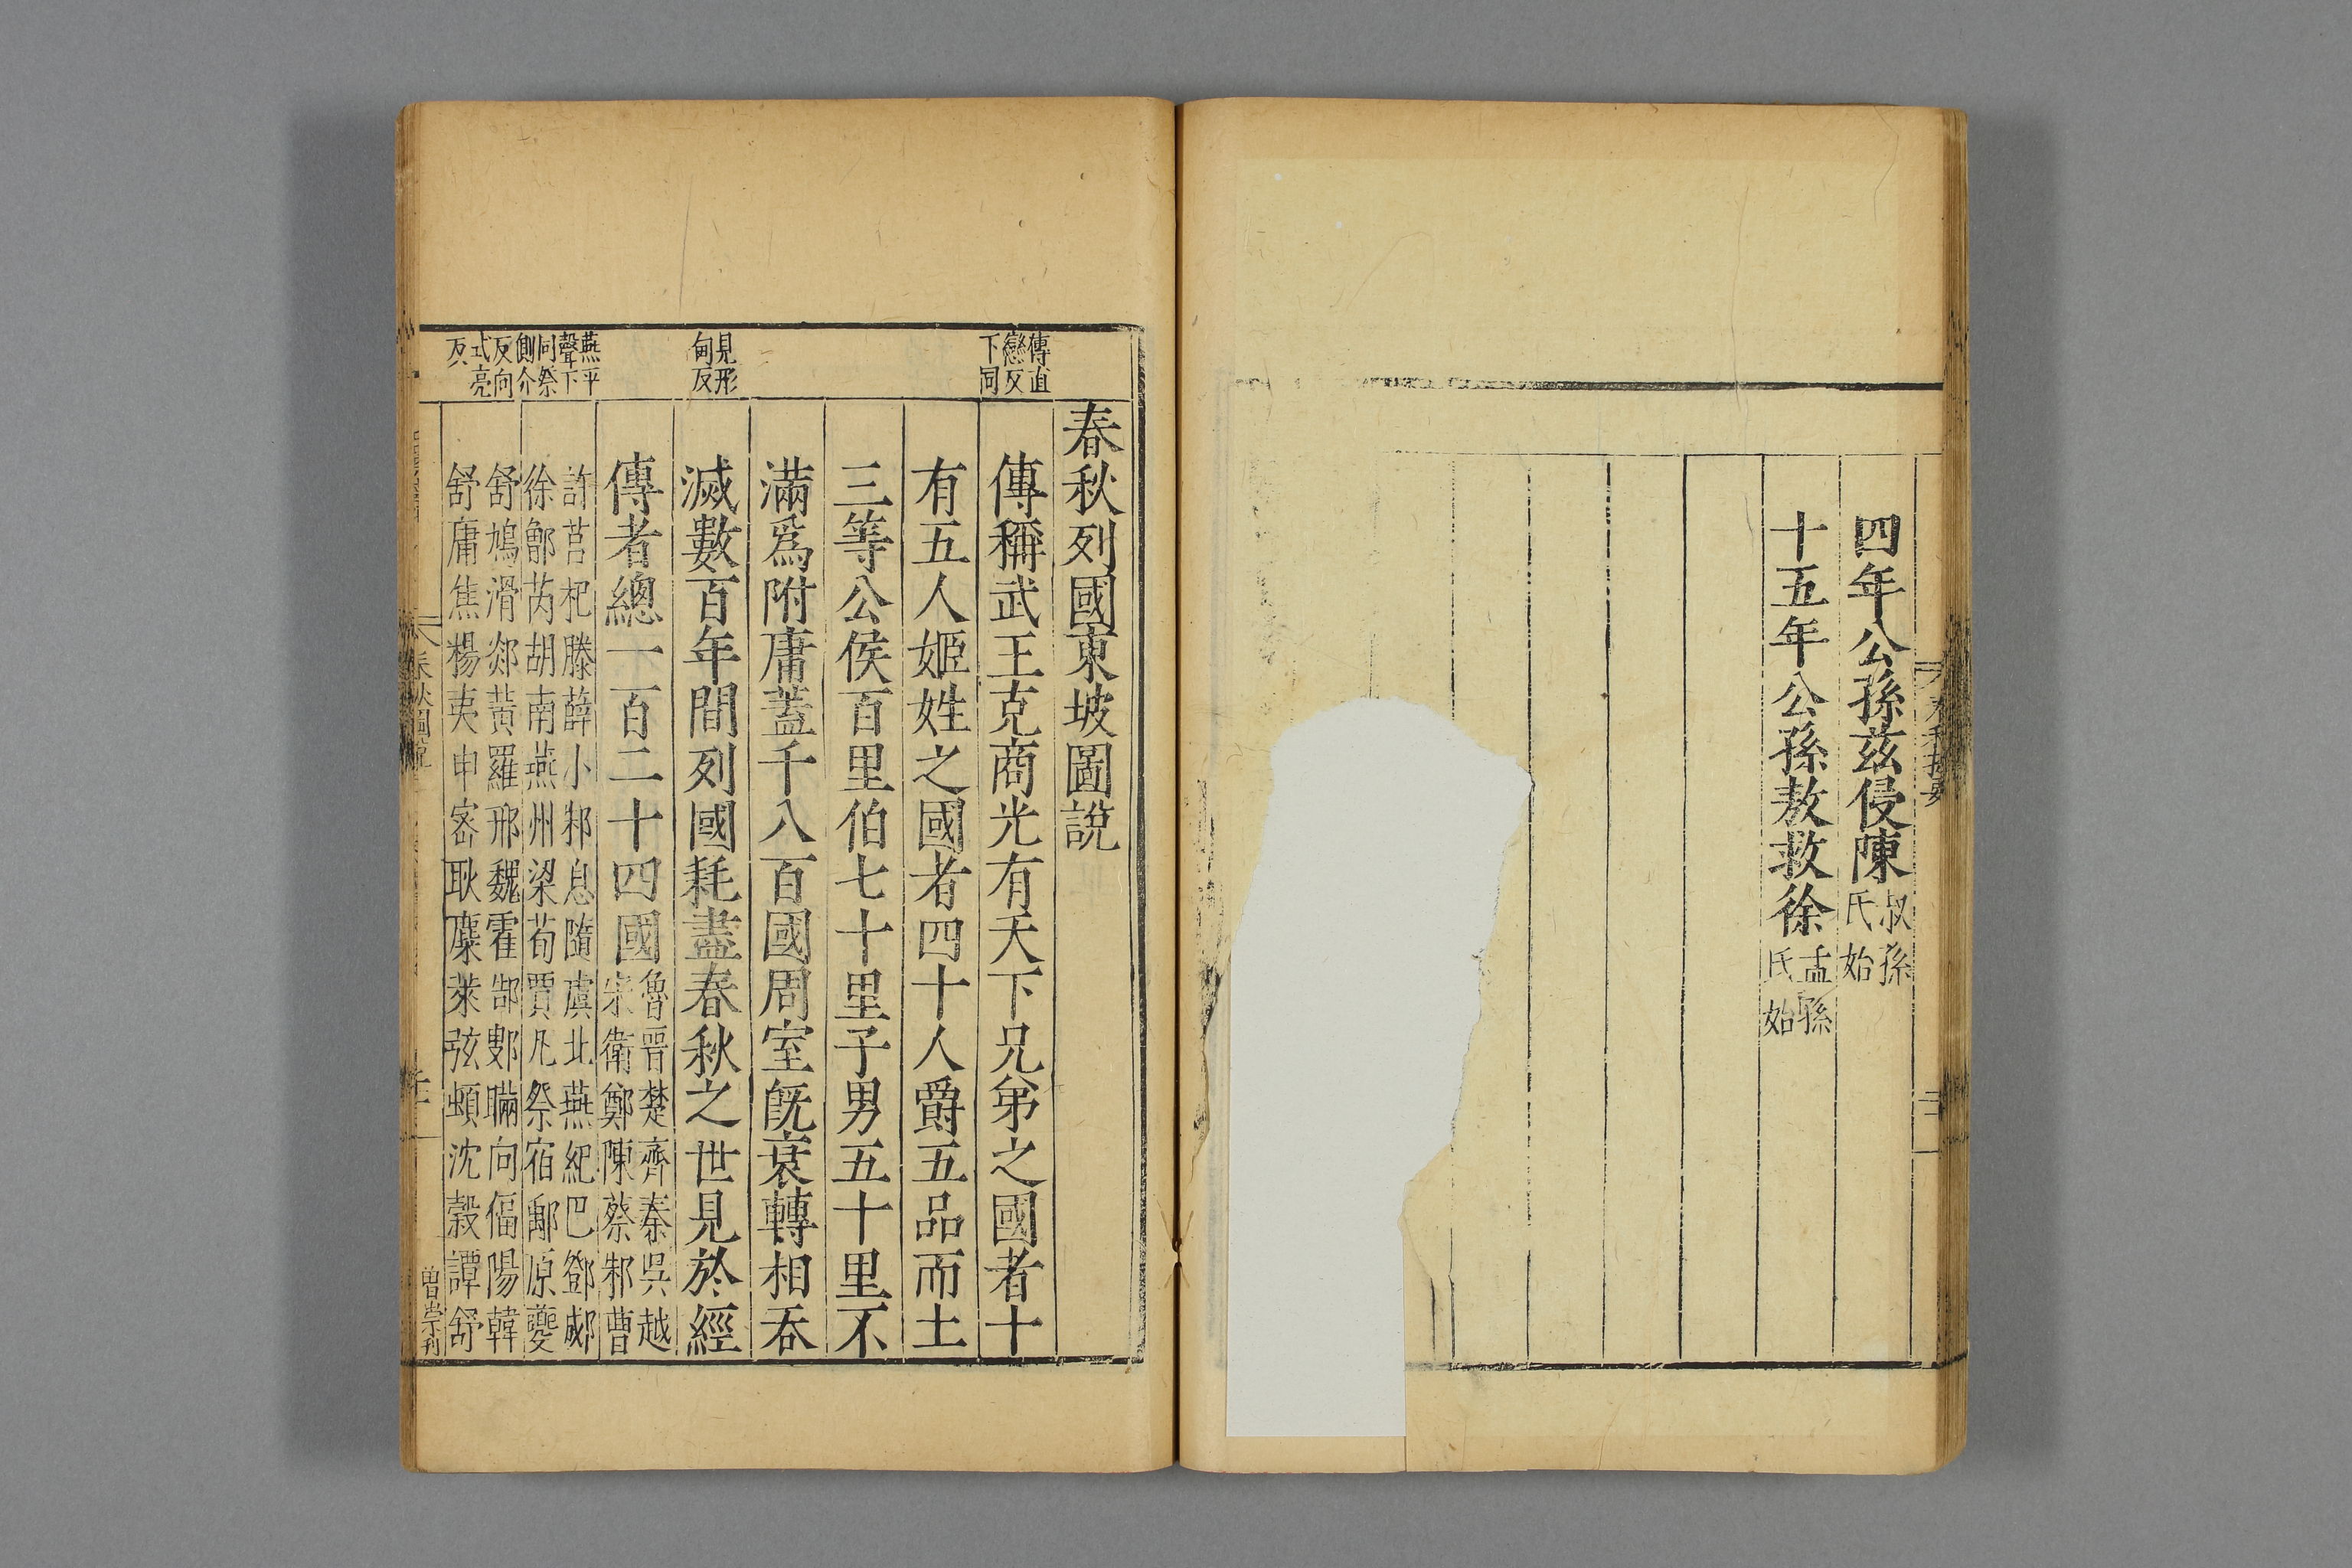 四年公孫茲侵陳叔孫氏始
十五年公孫敖救徐孟孫氏始
春秋列國東坡圖說
傳直戀反下同
傳稱武王克商光有天下兄弟之國者十
有五人姬姓之國者四十人爵五品而土
三等公侯百里伯七十里子男五十里不
滿爲附庸蓋千八百國周室旣衰轉相吞
見形甸反
滅數百年間列國耗盡春秋之世見於經
傳者總一百二十四國魯晉楚齊秦吳越
宋衛鄭陳蔡邾曹
燕平聲下同祭側介反向式亮反
許莒杞滕薛小邾息隨虞北燕紀巴鄧郕
徐鄫芮胡南燕州梁荀賈凡祭宿鄅原夔
舒鳩滑郯黃羅邢魏霍郜鄋瞞向偪陽韓
舒庸焦楊夷申密耿麋萊弦頓沈穀譚舒
春秋圖說
曽崇刊